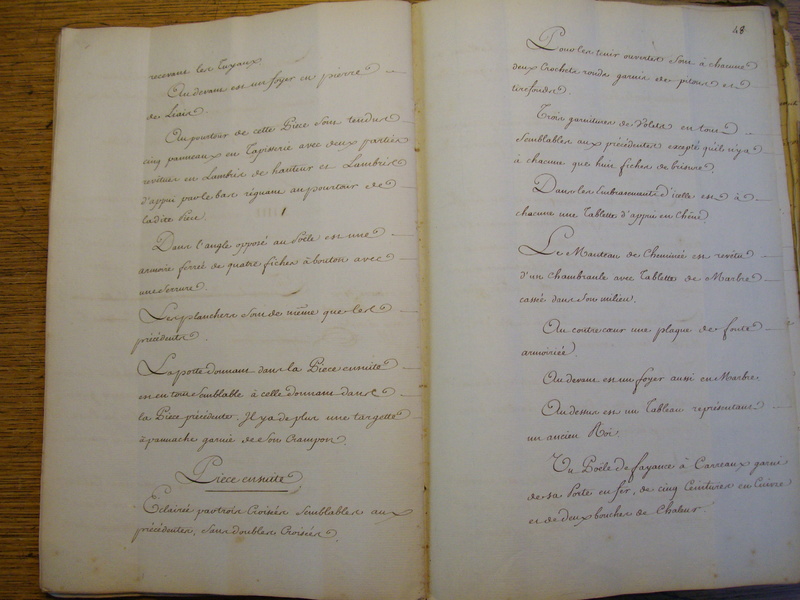 recevant les Tuyaux
Au devant est un foyer en pierre
de Liais.
Au pourtour de cette Piece sont tendus
cinq panneaux en Tapisserie avec deux parties
revêtues en Lambris de hauteur et Lambris
d'appui par le bas regnant au pourtour de
ladite Piece.
Dans l'angle opposé au Poële est une
armoire ferrée de quatre fiches à bouton avec
une Serrure.
Les planchers sont de même que les
précédents.
La porte donnant dans la Piece ensuite
est en tout semblable à celle donnant dans
la Piece précédente. Il y a de plus une targette
à panache garnie de son Crampon.
Piece ensuite
Eclairée par trois Croisées semblables aux
précédentes, sans doubles Croisées.
48
Pour les tenir ouvertes sont à chacune
deux Crochets ronds garnis de pitons et
tirefonds.
Trois garnitures de Volets en tout
semblables aux précédentes excepté qu'il n'y a
à chacune que huit fiches de brisure.
Dans les Embrasements d'icelles est à
chacune une Tablette d'appui en Chêne.
Le Manteau de Cheminée est revêtu
d'un Chambranle avec Tablette de Marbre
cassée dans son milieu.
Au contre cœur une plaque de fonte
armoiriée.
Au devant est un foyer aussi en Marbre.
Au dessus est un Tableau représentant
un ancien Roi.
Un Poële de fayance à Carreaux garni
de sa Porte en fer, de cinq Ceintures en Cuivre
et de deux bouches de Chaleur.